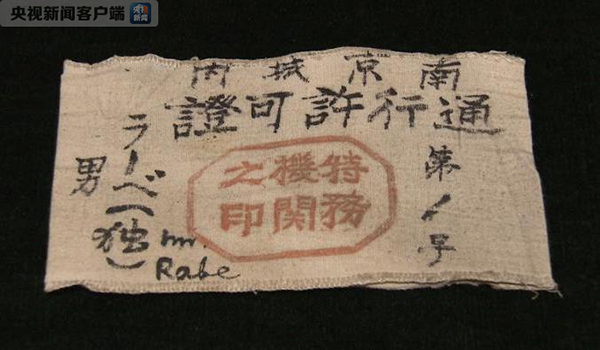 央视新闻客户端
央视新闻
南京城内
通行許可證
第1号
特務
機関
之印
ラーベ(独)
mr.
Rabe
男